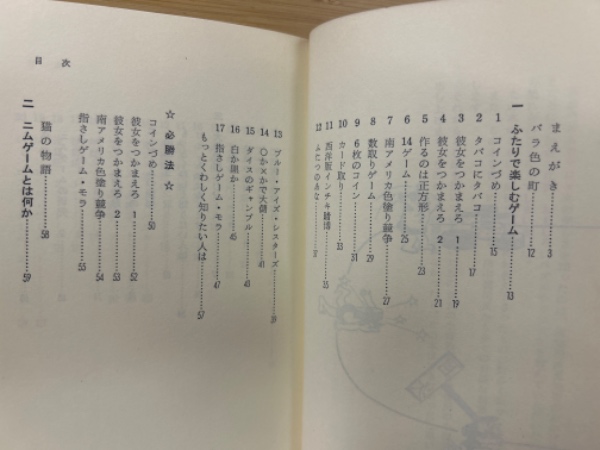 まえがき……3
バラ色の町……12
一 ふたりで楽しむゲーム……13
1 コインづめ……15
2 タバコにタバコ……17
3 彼女をつかまえろ 1……19
4 彼女をつかまえろ 2……21
5 作るのは正方形……23
6 14ゲーム……25
7 南アメリカ色塗り競争……27
8 数取りゲーム……29
9 6枚のコイン……31
10 カード取り……33
11 西洋版インチキ賭博……35
12 ムたつのみな……37
目次
13 ブルー・アイズ・シスターズ……39
14 〇か×かで大価……41
15 ダイスのギャンブル……43
16 白か黒か……45
17 指さしゲーム・モラ……47
もっとくわしく知りたい人は……57
☆ 必勝法 ☆
コインづめ……50
彼女をつかまえろ 1……52
彼女をつかまえろ 2……53
南アメリカ色塗り競争……54
指さしゲーム・モラ……55
猫の物語……58
二 ニムゲームとは何か……59